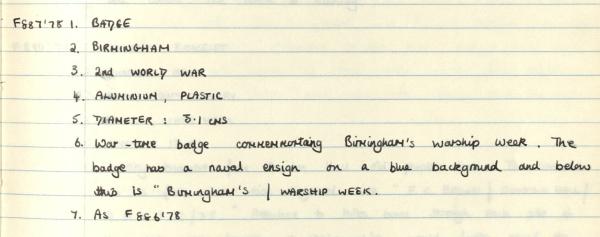 F886'78 1. BADGE
2. BIRMINGHAM
3. 2nd WORLD WAR
4. ALUMINIUM, PLASTIC
5. DIAMETER : 3.1 cms
6. War-time badge commemorating Birmingham's warship week. The
badge has a naval ensign on a blue background and below
this is "Birmingham's | WARSHIP WEEK.
7. As F886'78